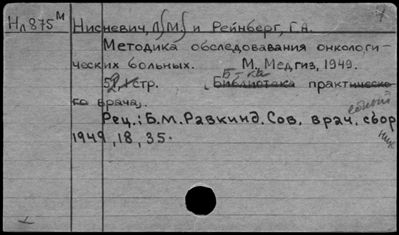 7
Нл875м Нисневич, Л М. и Рейнберг, Г.А.
Методика обследования онкологи-
ческих больных. М., Медгиз, 1949.
52 стр. Б-ка
Библиотека практическо-
го врача.
Рец.: Б.М. Равкинд. Сов. врач. сбор
1949, 18, 35.